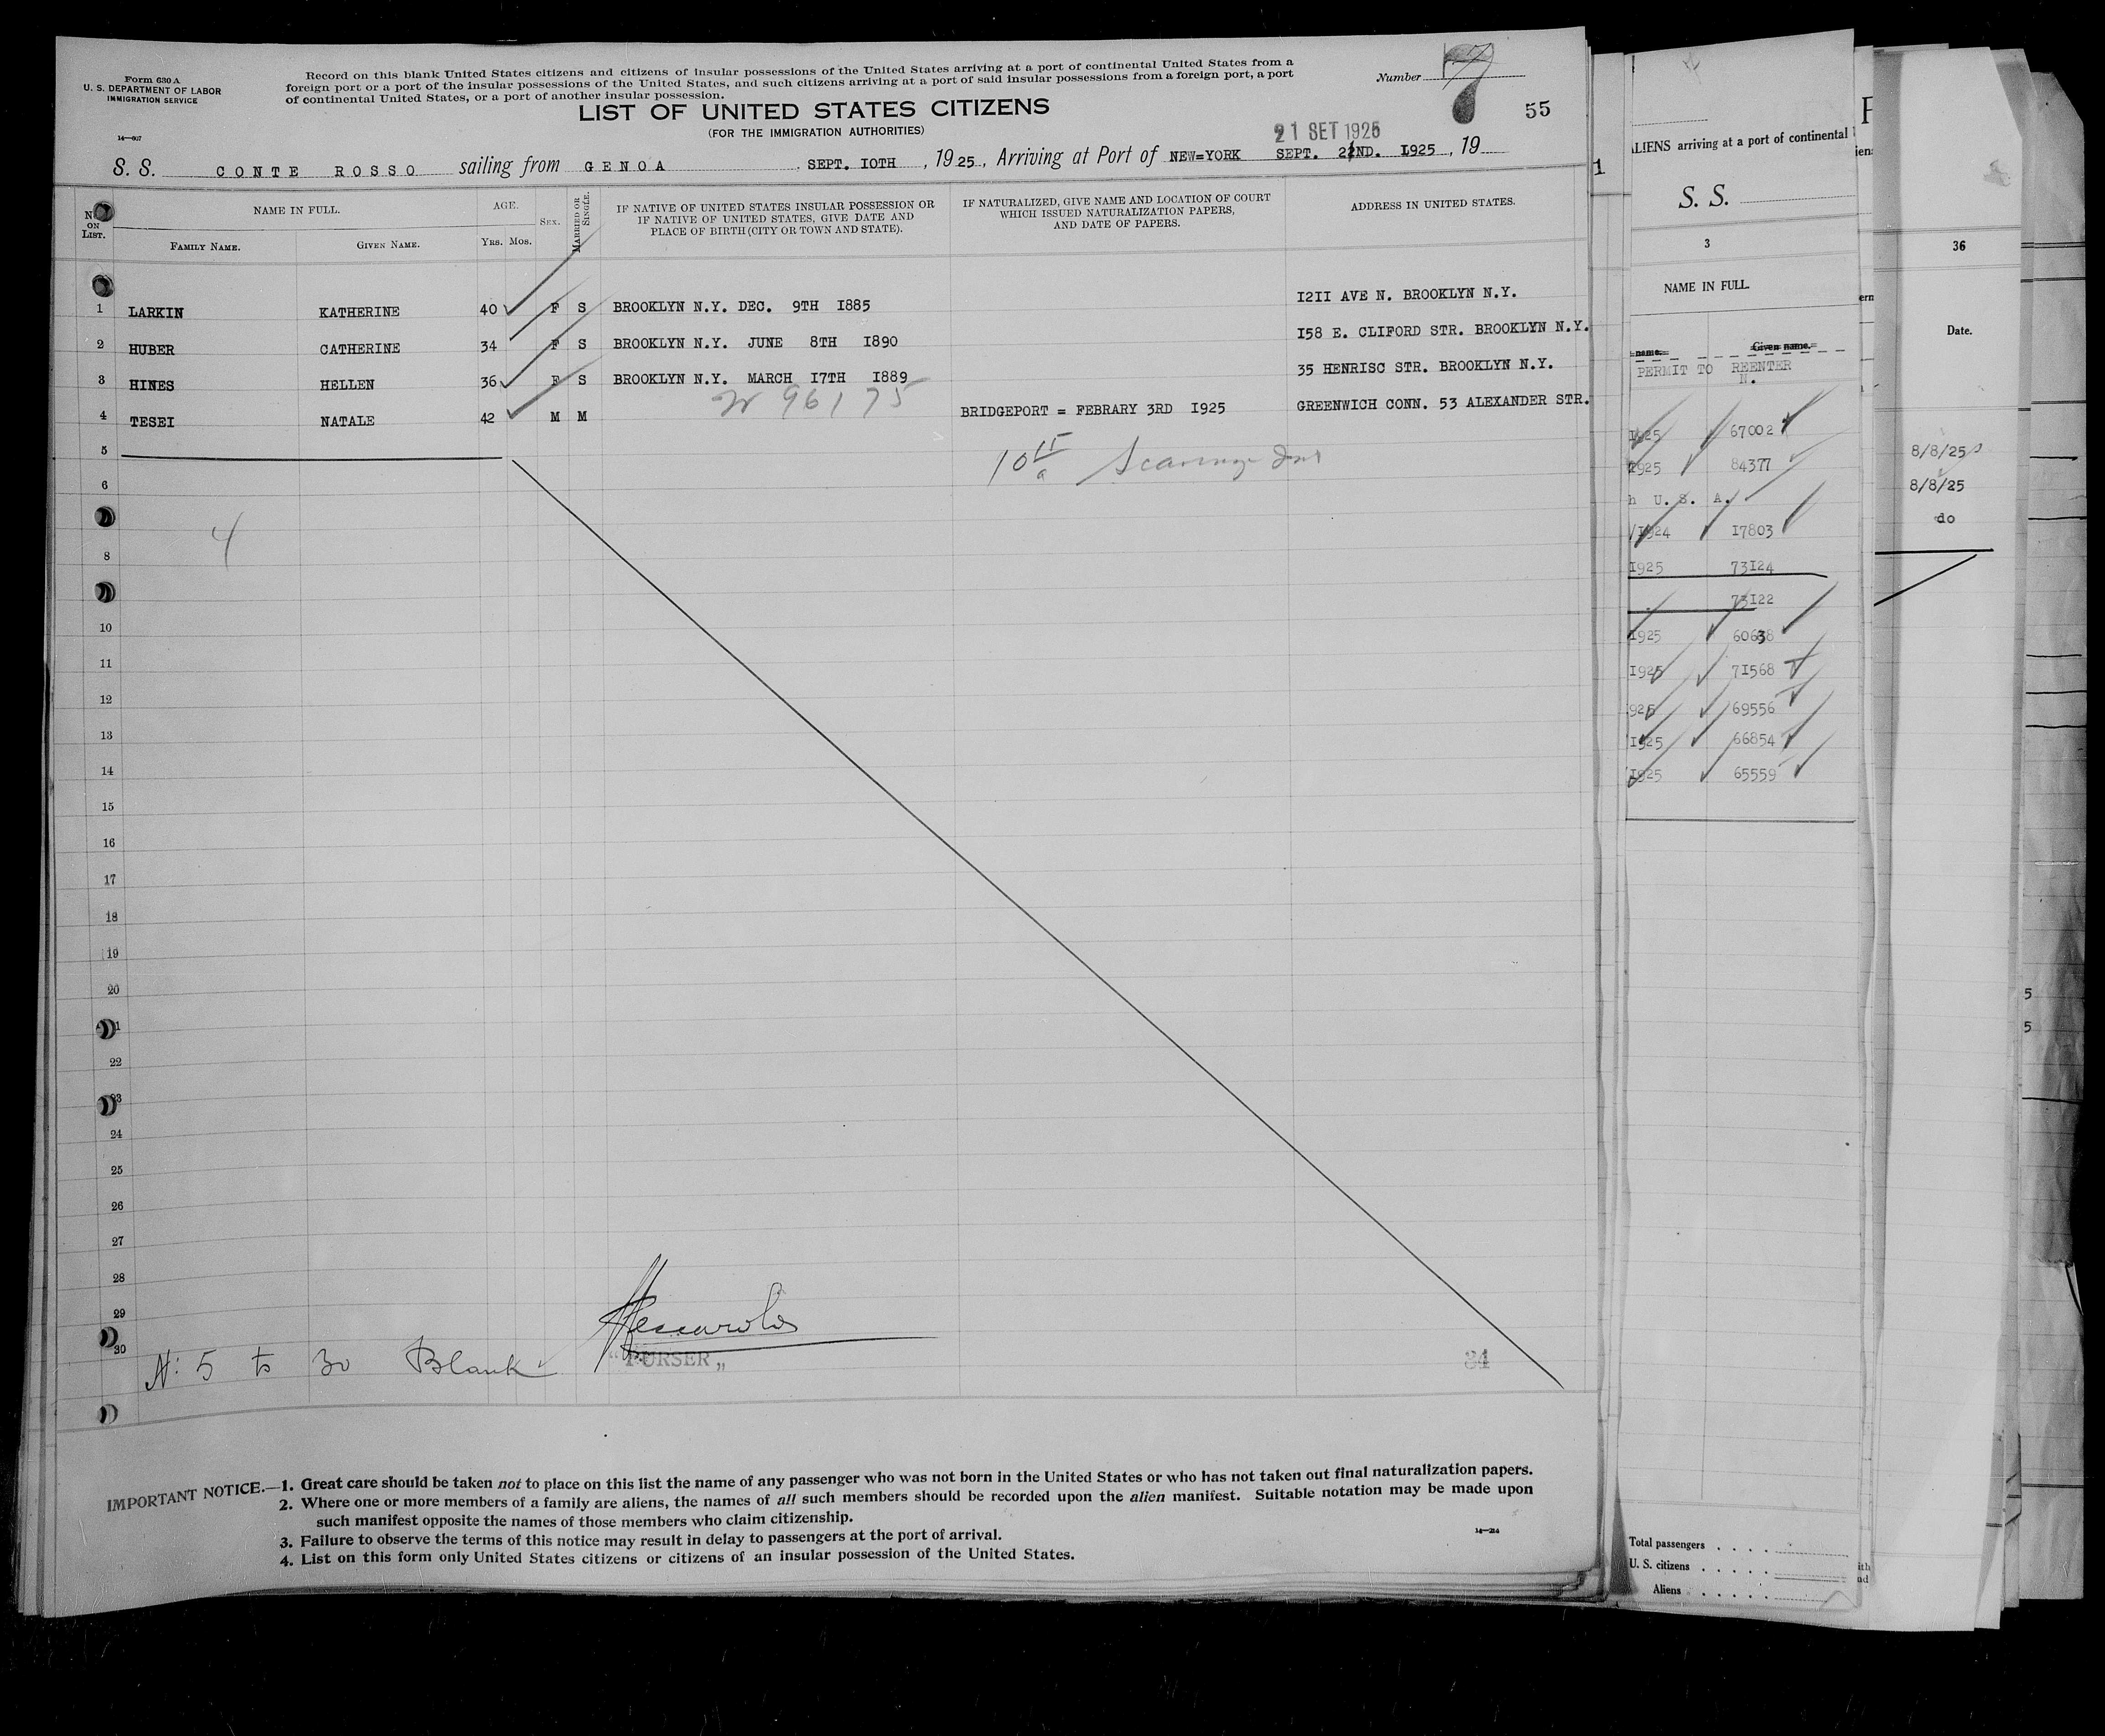 Form 630 A
U. S. DEPARTMENT OF LABOR
IMMIGRATION SERVICE
14—607
Record on this blank United States citizens and citizens of insular possessions of the United States arriving at a port of continental United States from a
foreign port or a port of the insular possessions of the United States, and such citizens arriving at a port of said insular possessions from a foreign port, a port
of continental United States, or a port of another insular possession.
Number 7
55
LIST OF UNITED STATES CITIZENS
(FOR THE IMMIGRATION AUTHORITIES)
21 SET 1925
S. S. CONTE ROSSO sailing from GENOA SEPT. IOTH , 1925, Arriving at Port of NEW=YORK SEPT. 22ND. I925 , 19
No. ON LIST.
NAME IN FULL.
FAMILY NAME. GIVEN NAME.
AGE.
YRS. MOS.
SEX.
MARRIED OR SINGLE.
IF NATIVE OF UNITED STATES INSULAR POSSESSION OR
IF NATIVE OF UNITED STATES, GIVE DATE AND
PLACE OF BIRTH (CITY OR TOWN AND STATE).
IF NATURALIZED, GIVE NAME AND LOCATION OF COURT
WHICH ISSUED NATURALIZATION PAPERS,
AND DATE OF PAPERS.
ADDRESS IN UNITED STATES.
1 LARKIN KATHERINE 40 F S BROOKLYN N.Y. DEC. 9TH I885 I2II AVE N. BROOKLYN N.Y.
2 HUBER CATHERINE 34 F S BROOKLYN N.Y. JUNE 8TH I890 I58 E. CLIFORD STR. BROOKLYN N.Y.
3 HINES HELLEN 36 F S BROOKLYN N.Y. MARCH I7TH I889 35 HENRISC STR. BROOKLYN N.Y.
96175
4 TESEI NATALE 42 M M BRIDGEPORT = FEBRARY 3RD I925 GREENWICH CONN. 53 ALEXANDER STR.
5
6
4
8
10
11
12
13
14
15
16
17
18
19
20
22
24
25
26
27
28
29
30
N: 5 to 30 Blank
"PURSER„
34
IMPORTANT NOTICE.—1. Great care should be taken not to place on this list the name of any passenger who was not born in the United States or who has not taken out final naturalization papers.
2. Where one or more members of a family are aliens, the names of all such members should be recorded upon the alien manifest. Suitable notation may be made upon
such manifest opposite the names of those members who claim citizenship.
3. Failure to observe the terms of this notice may result in delay to passengers at the port of arrival.
4. List on this form only United States citizens or citizens of an insular possession of the United States.
14—214
1
ALIENS arriving at a port of continental
S. S.
3
NAME IN FULL.
name. Given name.
PERMIT TO REENTER
N.
1925 67002
1925 84377
h U. S. A.
/1924 I7803
I925 73I24
73I22
1925 60638
I925 7I568
925 69556
I925 66854
I925 65559
Total passengers
U. S. citizens
Aliens
36
Date.
8/8/25
8/8/25
do
5
5